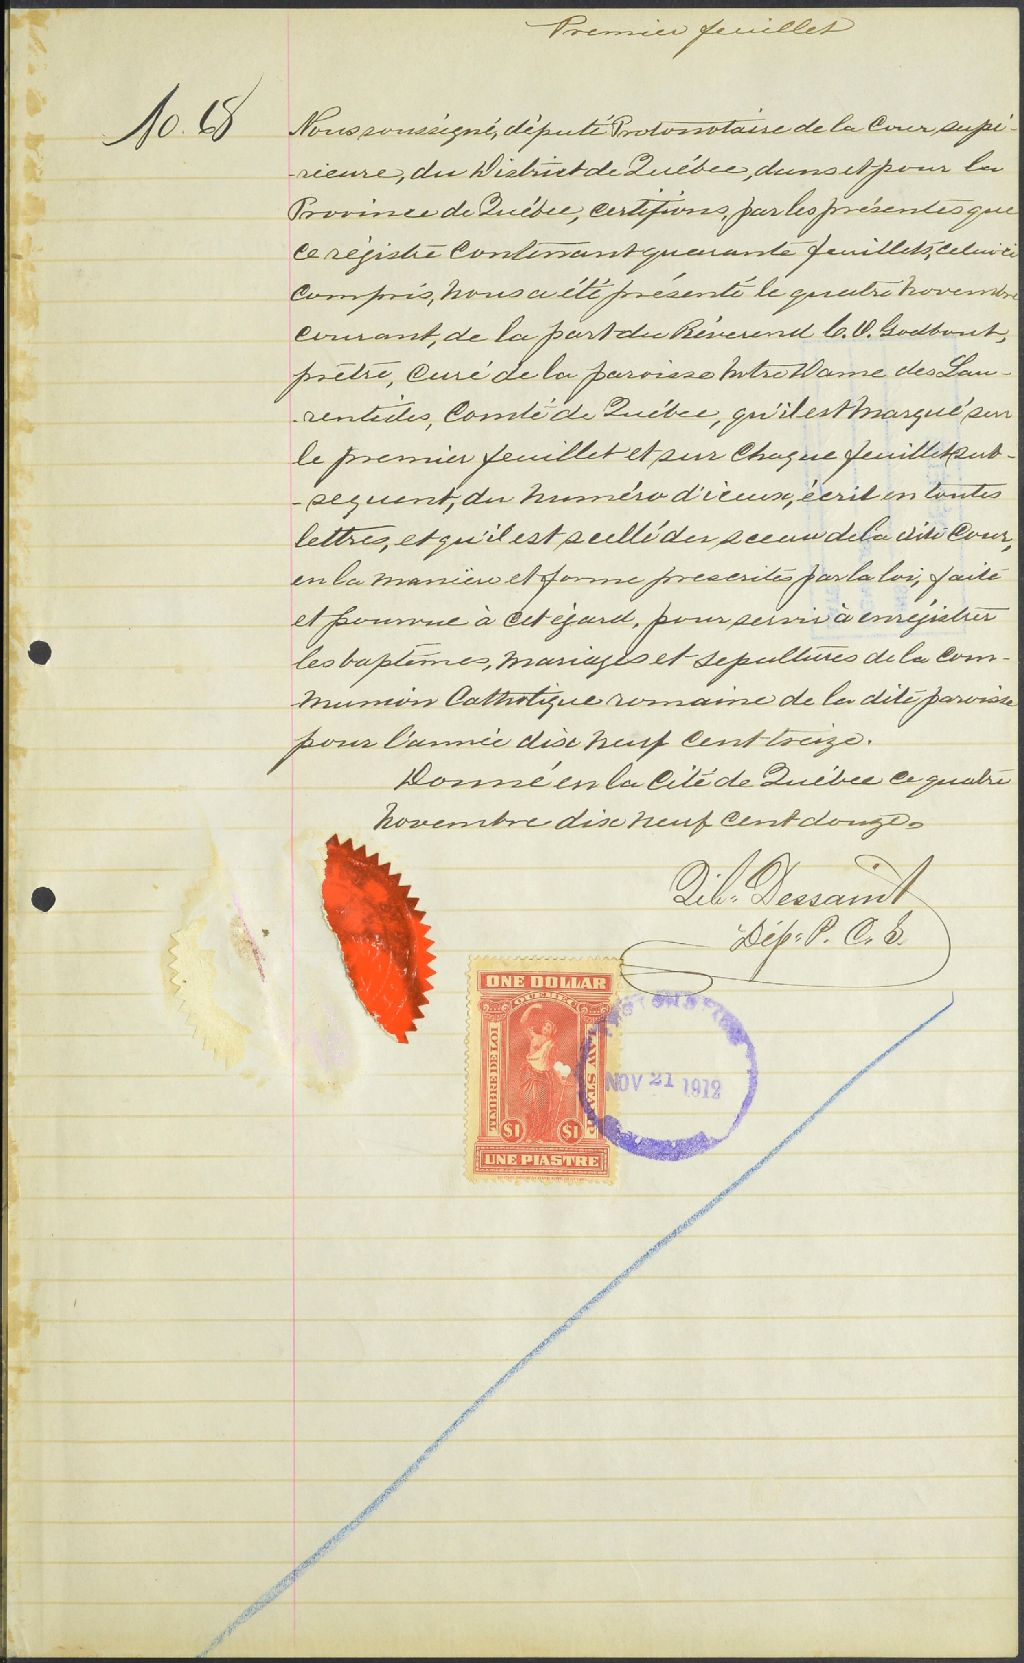 Premier feuillet
No. 68
Nous soussigné, député Protonotaire de la Cour supé-
-rieure, du District de Québec, dans et pour la
Province de Québec, certifions, par les présentes que
ce régistre contenant quarante feuillets, celui ci
compris, nous a été présenté le quatre novembre
courant, de la part du Réverend C. V. Godbout,
prêtre, curé de la paroisse Notre Dame des Lau-
-rentides, Comté de Québec, qu'il est marqué sur
le premier feuillet et sur chaque feuillet sub-
-sequent, du numéro d'iceux, écrit en toutes
lettres, et qu'il est scellé du sceau de la dite Cour,
en la manière et forme prescrites par la loi, faite
et pourvue à cet égard, pour servir à enrégistrer
les baptêmes, mariages et sepultures de la Com-
munion Catholique romaine de la dite paroisse
pour l'année dix neuf cent treize.
Donné en la Cité de Québec ce quatre
novembre dix neuf cent douze.
Dessaint
Dép. P. C. S.
ONE DOLLAR
QUEBEC
TIMBRE DE LOI
LAW STAMP
$1 $1
UNE PIASTRE
NOV 21 1912